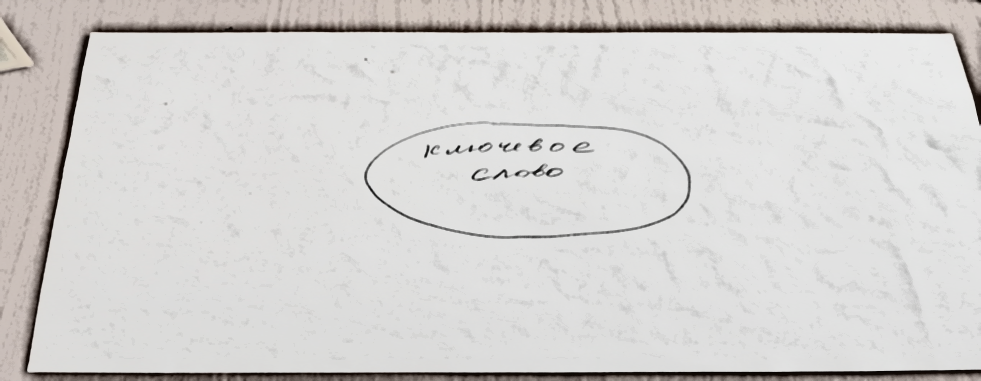 ключевое
слово